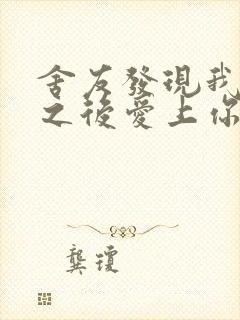 舍友發現我
之後愛上你
龔瓊